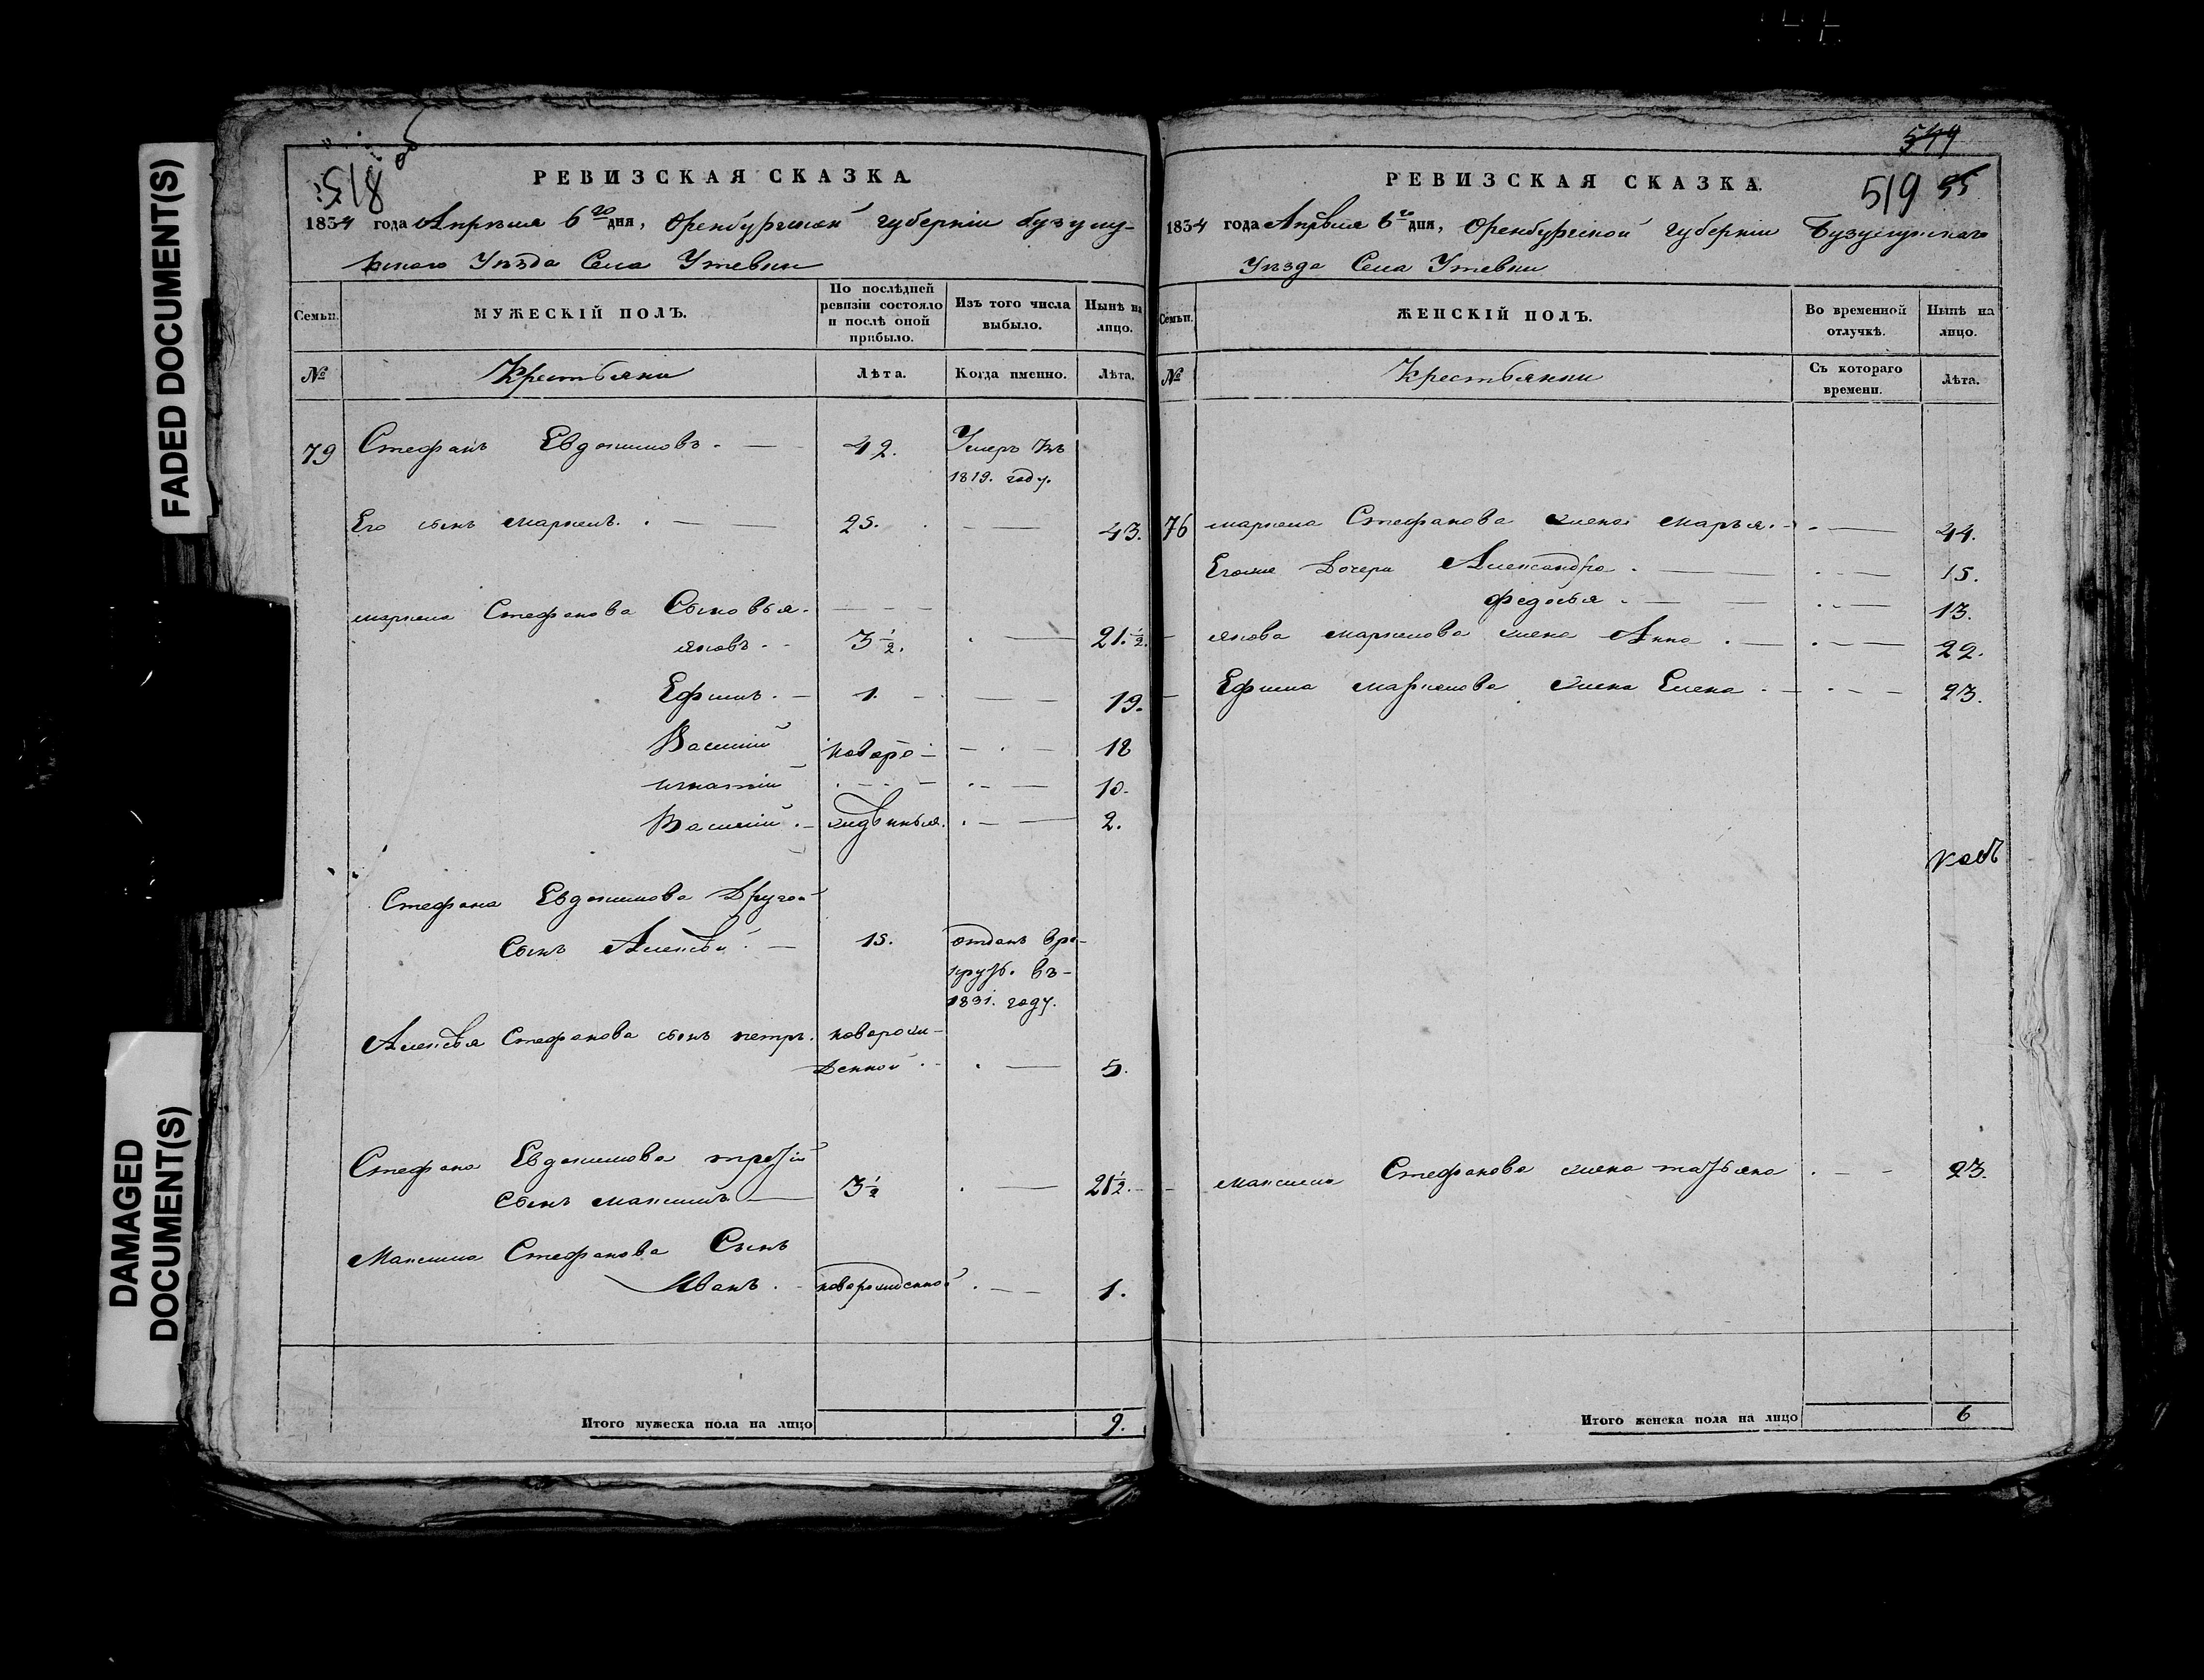 FADED DOCUMENT(S)
DAMAGED
DOCUMENT(S)
518 об
РЕВИЗСКАЯ СКАЗКА.
1834 года Апреля 6го дня, Оренбургской губернiи бузулу-
кскаго Уѣзда Села Утевки
Семьи.
МУЖЕСКIЙ ПОЛЪ.
По послѣдней
ревизiи состояло
и послѣ оной
прибыло.
Изъ того числа
выбыло.
Нынѣ на
лицо.
№
Крестьяни
Лѣта.
Когда именно.
Лѣта.
79 Стефанъ Евдокимовъ. — 42. Умеръ въ
1819. году.
Его сынъ маркелъ. — 25. — 43.
маркела Стефанова Сыновья.
яковъ. 3 1/2. — 21. 1/2.
Ефимъ. — 1. — 19.
Василий новоро — 18
игнатий — 10.
Василий. — жденныя. — 2.
Стефана Евдокимова Другой
Сынъ Алексѣй. — 15. отданъ вре-
круты. въ-
1831. году.
Алексѣя Стефанова сынъ петръ. новорож-
Денной. — 5.
Стефана Евдокимова третiй
Сынъ максимъ — 3 1/2 — 21 1/2.
Максима Стефанова Сынъ
Иванъ. новорожденной. — 1.
Итого мужеска пола на лицо 9.
544
519 55
РЕВИЗСКАЯ СКАЗКА.
1834 года Апрѣля 6го дня, Оренбургской губернiи Бузулукскаго
Уѣзда Села Утевки
Семьи.
ЖЕНСКIЙ ПОЛЪ.
Во временной
отлучкѣ.
Нынѣ на
лицо.
№
Крестьянки
Съ котораго
времени.
Лѣта.
76 маркела Стефанова жена марья. — 44.
Егоже Дочери Александра. — 15.
федосья. — 13.
якова маркелова жена Анна. — 22.
Ефима маркелова жена Елена. — 23.
максима Стефанова жена татьяна. — 23.
Итого женска пола на лицо 6